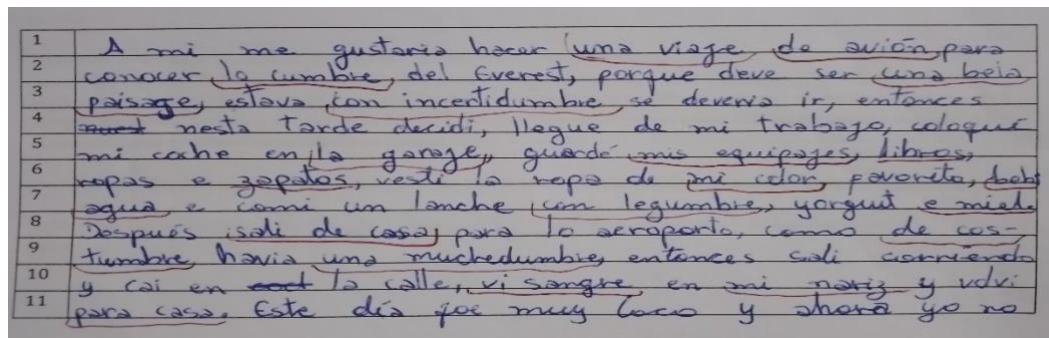 1 A mi me gustaria hacer una viage de avión para
2 conocer la cumbre, del Everest, porque deve ser una bela
3 paisage, estava con incertidumbre se deveria ir, entonces
4 nesta tarde decidi, llegue de mi trabajo, coloqué
5 mi coche en la garage, guardé mis equipajes, libros,
6 ropas e zapatos, vesti la ropa de mi color favorito, bebi
7 agua e comi un lanche con legumbre, yorgut e miel.
8 Después sali de casa para lo aeroporto, como de cos-
9 tumbre, havia una muchedumbre, entonces sali corriendo
10 y cai en la calle, vi sangre en mi nariz y volvi
11 para casa. Este día foe muy loco y ahora yo no